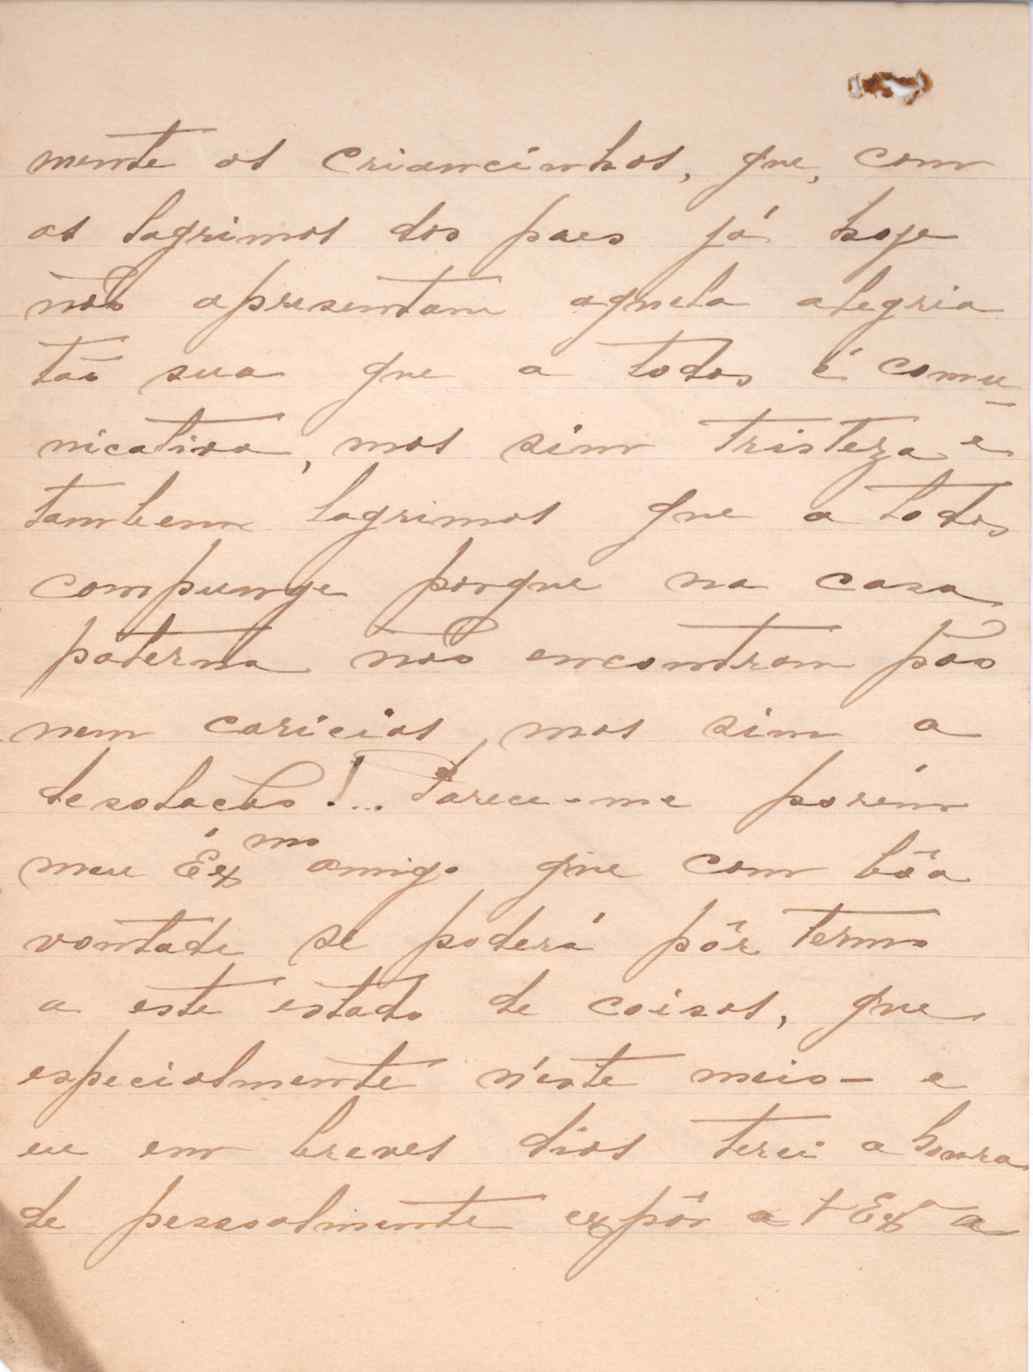 mente as criancinhas, que, com
as lagrimas dos paes já hoje
não apresentam aquela alegria
tão sua que a todos é comu-
nicativa, mas sim tristeza e
tambem lagrimas que a todos
compunge porque na casa
paterna não encontram pão
nem caricias, mas sim a
desolação!.. Parece-me porém
meu Éx.mo amigo que com bôa
vontade se poderá pôr termo
a este estado de coisas, que
especialmente n'este meio - e
eu em breves dias terei a honra
de pessoalmente expôr a V Exª a